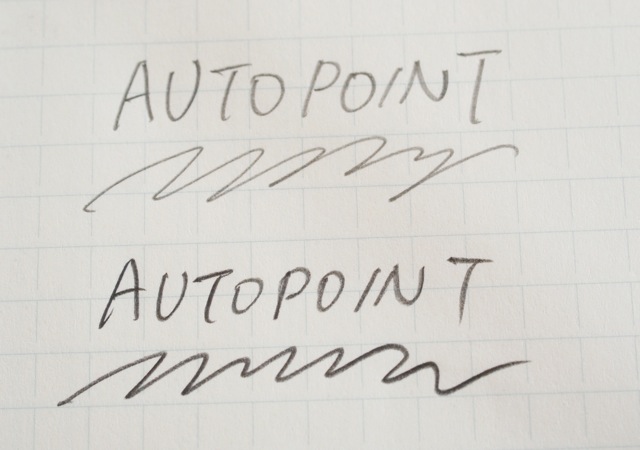 AUTOPOINT
AUTOPOINT